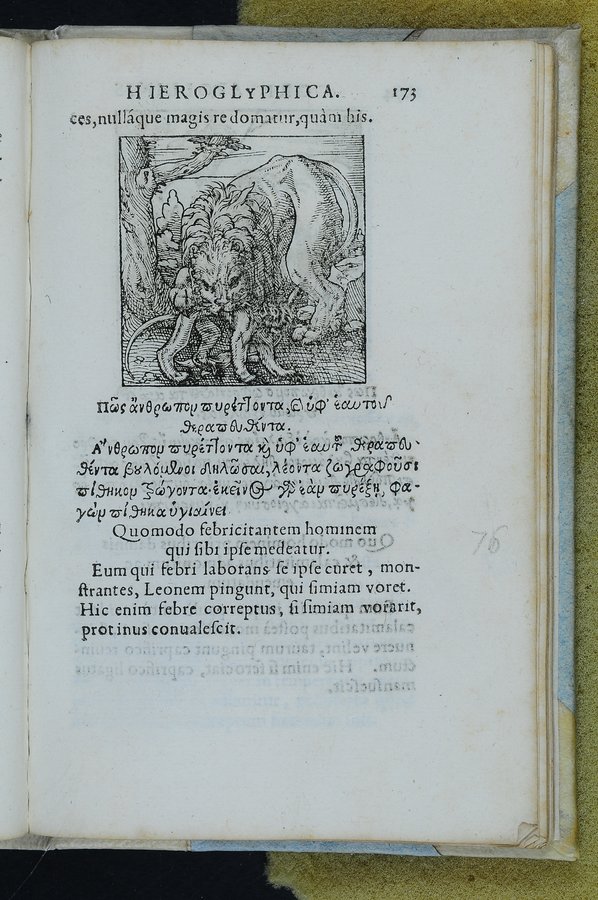 HIEROGLYPHICA. 173
ces, nulláque magis re domatur, quàm his.
Πῶς ἄνθρωπον πυρέττοντα, καὶ ὑφ' ἑαυτοῦ
θεραπευθέντα.
Ἄνθρωπον πυρέττοντα καὶ ὑφ' ἑαυτοῦ θεραπευ-
θέντα βουλόμενοι δηλῶσαι, λέοντα ζωγραφοῦσι
πίθηκον τρώγοντα· ἐκεῖνος γὰρ ἐὰν πυρέξῃ, φα-
γὼν πίθηκα ὑγιαίνει
Quomodo febricitantem hominem
qui sibi ipse medeatur.
Eum qui febri laborans se ipse curet, mon-
strantes, Leonem pingunt, qui simiam voret.
Hic enim febre correptus, si simiam vorarit,
protinus conualescit.
76